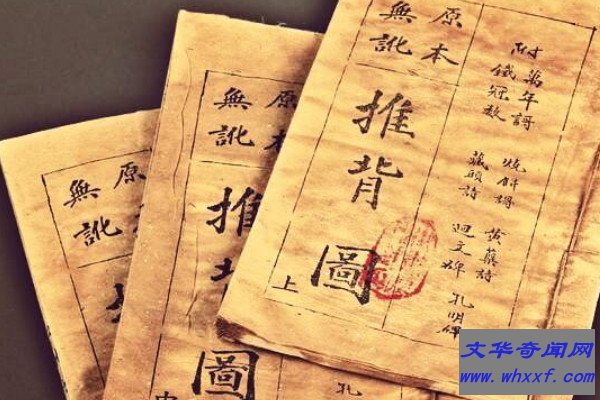 附
萬年謌
鐵冠数
燒餅謌
藏頭詩
黃蘗詩
迴文碑
孔明碑
原本
無訛
推背圖
上
原本
無訛
推背圖
孔
原
無訛
文华奇闻网
www.whxxf.com